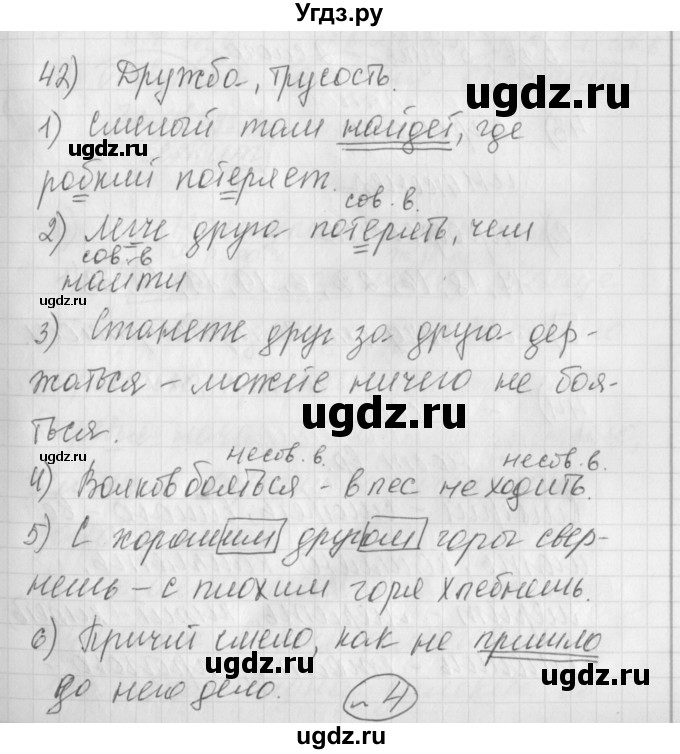 Угдз.ру
42) Дружба, трусость.
1) Смелый там найдет, где
робкий потеряет.
сов. в.
2) Легче друга потерять, чем
сов. в
найти
3) Станете друг за друга дер-
жаться – можете ничего не боя-
ться.
несов. в. несов. в.
4) Волков бояться – в лес не ходить.
5) С хорошим другом горы свер-
нешь – с плохим горя хлебнешь.
6) Кричит смело, как не пришло
до него дело.
ugdz.ru
ugdz.ru
ugdz.ru
ugdz.ru
ugdz.ru
ugdz.ru
ugdz.ru
ugdz.ru
ugdz.ru
ugdz.ru
ugdz.ru
ugdz.ru